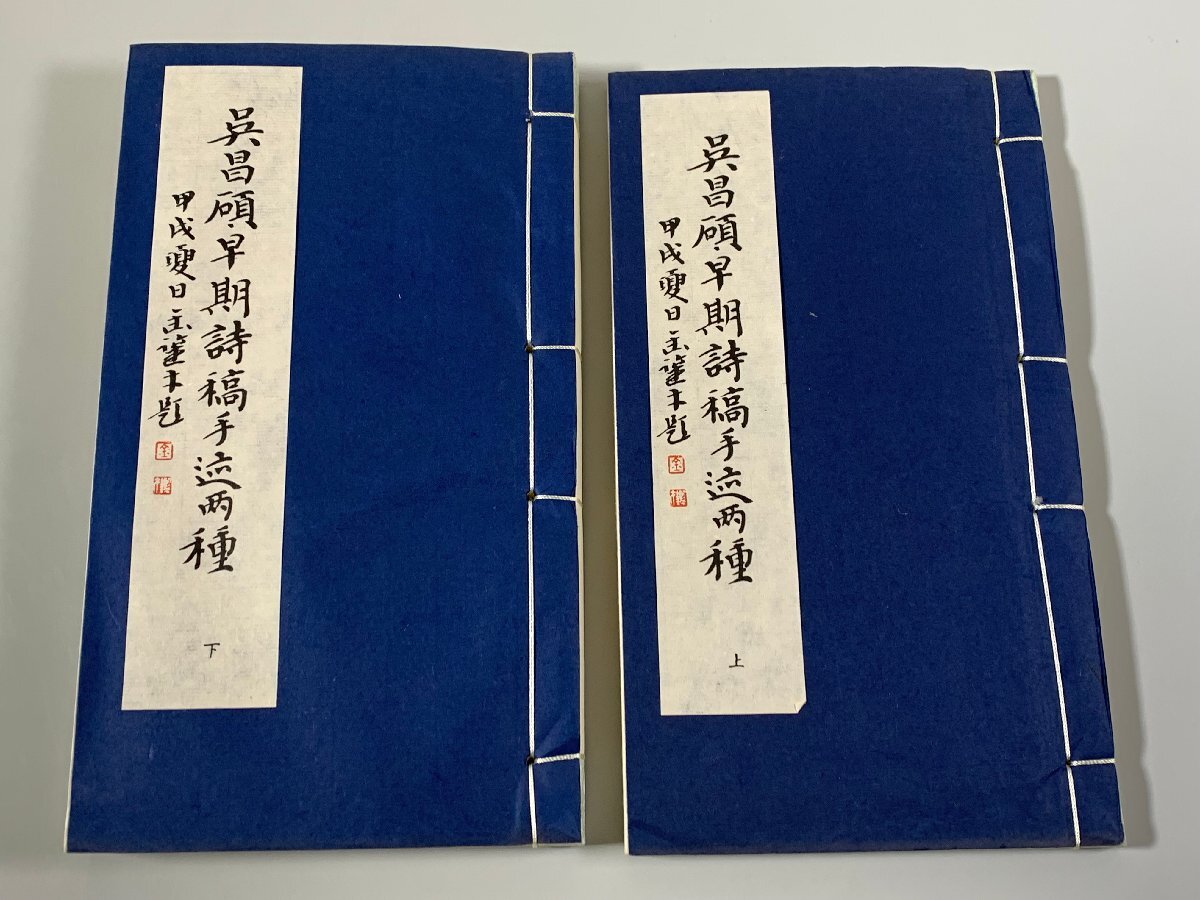 吳昌碩早期詩稿手迹两種
甲戌夏日金鑒才題
上
吳昌碩早期詩稿手迹两種
甲戌夏日金鑒才題
下